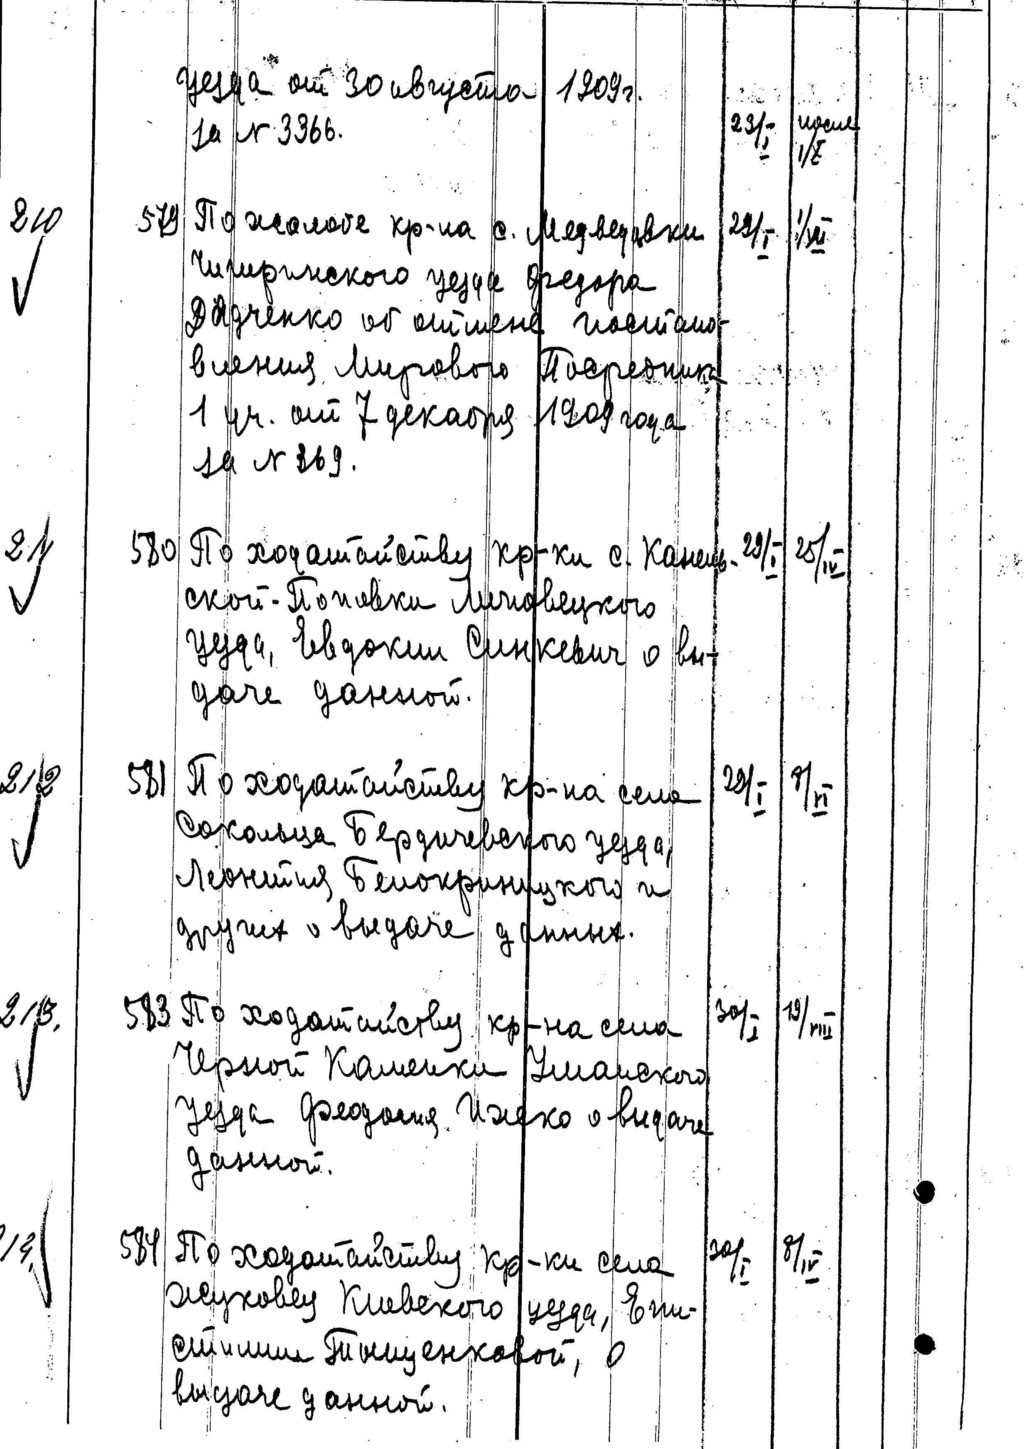 уезда от 30 августа 1909г.
за N 3366. 23/I после
1/X
210 579 По жалобе кр-на с. Медведовки 29/I 1/VII
Чигиринского уезда Федора
Дядченко об отмене постано-
вления Мирового Посредника
1 уч. от 7 декабря 1909 года
за N 369.
211 580 По ходатайству кр-ки с. Канель- 29/I 25/IV
ской-Поповки Липовецкого
уезда, Евдокии Синкевич о вы-
даче данной.
212 581 По ходатайству кр-на села 29/I 8/VI
Сокольца Бердичевского уезда,
Леонтия Белокриницкого и
других о выдаче данных.
213. 583 По ходатайству кр-на села 30/I 19/VIII
Черной Каменки Уманского
уезда Феодосия Ижеко о выдаче
данной.
214. 584 По ходатайству кр-ки села 30/I 8/IV
Жуковец Киевского уезда, Епи-
стимии Тыщенковой, о
выдаче данной.